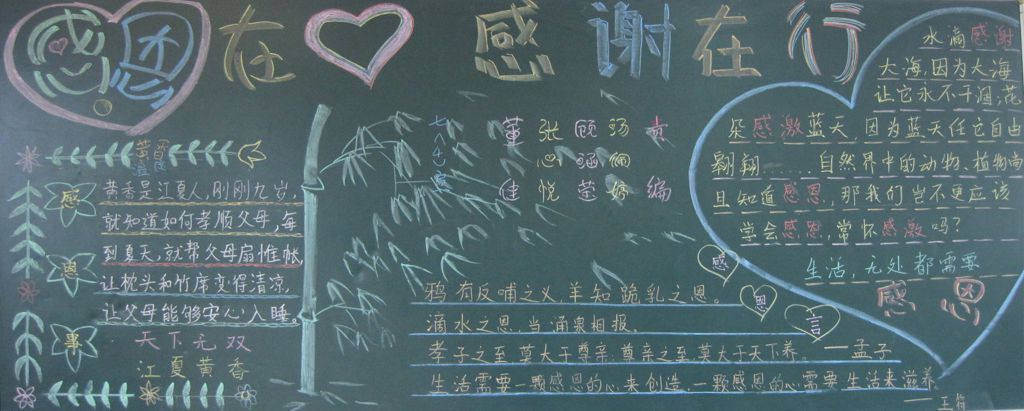 感恩在 感谢在行
黄香
温席
感恩事
黄香是江夏人,刚刚九岁,
就知道如何孝顺父母,每
到夏天,就帮父母扇惟帐,
让枕头和竹席变得清凉,
让父母能够安心入睡。
天下无双
江夏黄香
责编
汤佩婷
顾涵莹
张心悦
董健
感恩言
鸦有反哺之义,羊知跪乳之恩。
滴水之恩,当涌泉相报。
孝子之至,莫大于尊亲;尊亲之至,莫大于天下养。——孟子
生活需要一颗感恩的心来创造,一颗感恩的心需要生活来滋养。
——王符
水滴感谢
大海,因为大海
让它永不干涸;花
朵感激蓝天,因为蓝天任它自由
翱翔……自然界中的动物、植物尚
且知道感恩,那我们岂不更应该
学会感恩,常怀感激吗?
生活,无处都需要
感恩